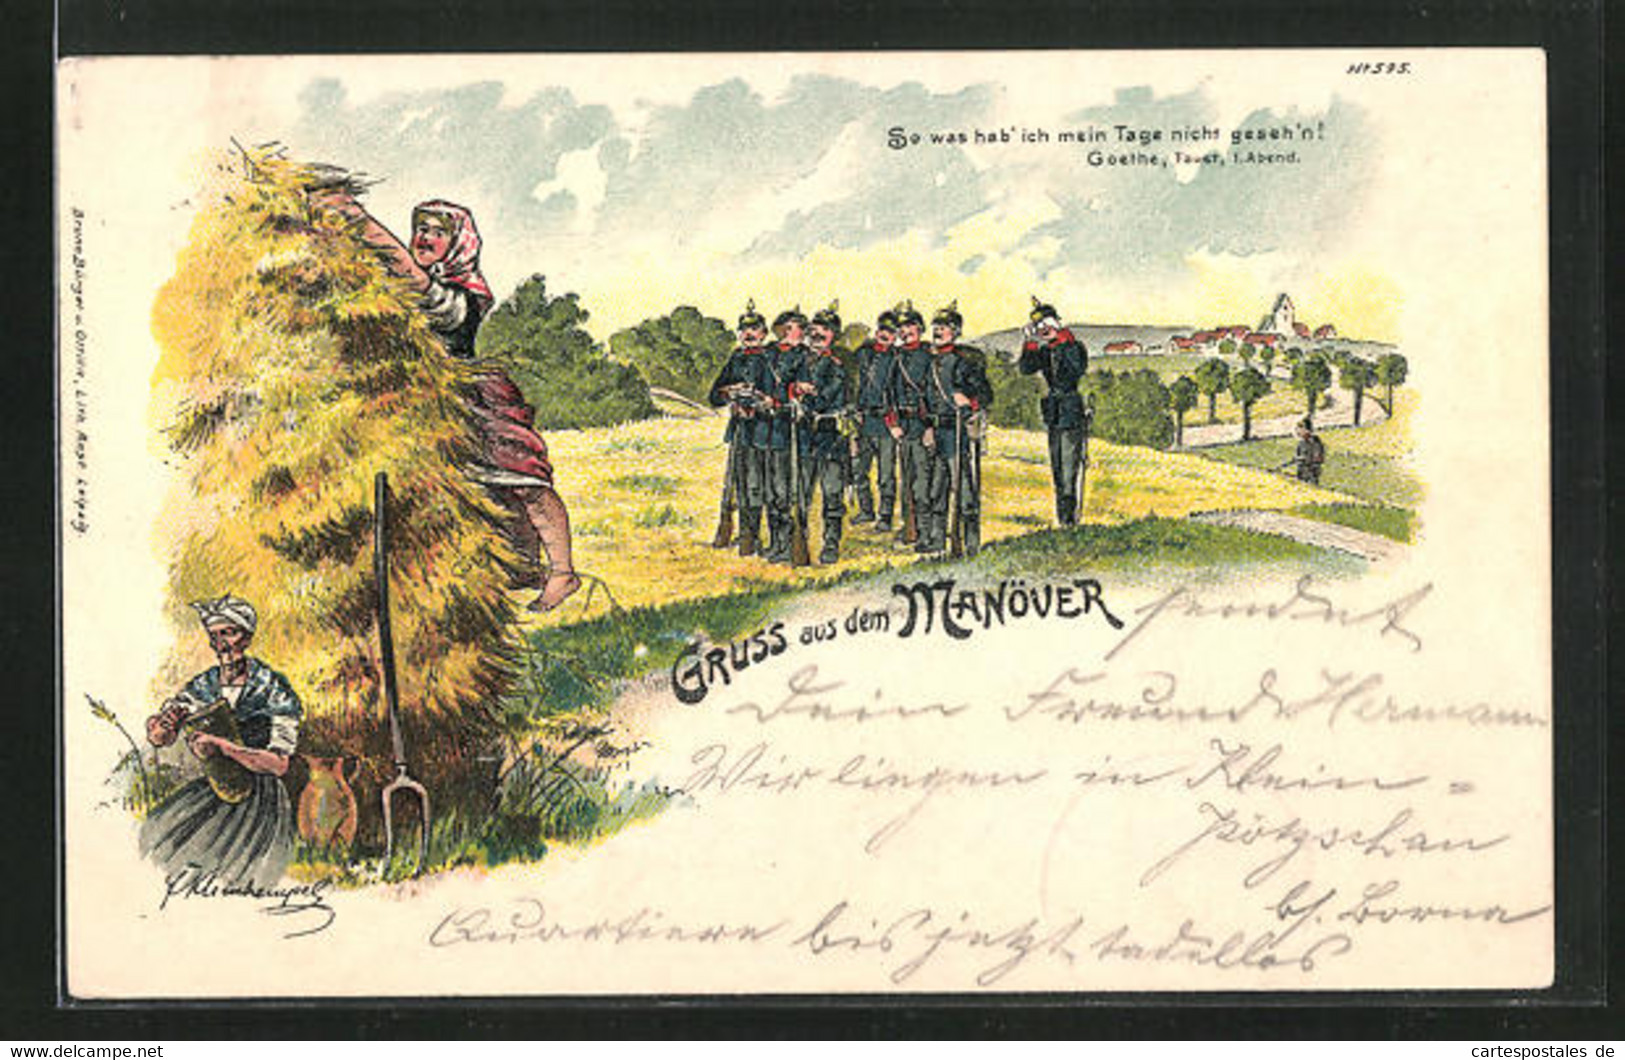 Nr 595.
So was hab' ich mein Tage nicht geseh'n!
Goethe, Faust, 1. Abend.
Bruno Bürger u. Ottilie, Lith. Anst. Leipzig.
GRUSS aus dem MANÖVER
sendet
Dein Freund Hermann
Wir liegen in Klein-
Pötzschau
bf. Borna
Quartiere bis jetzt tadellos
F Kleinhempel